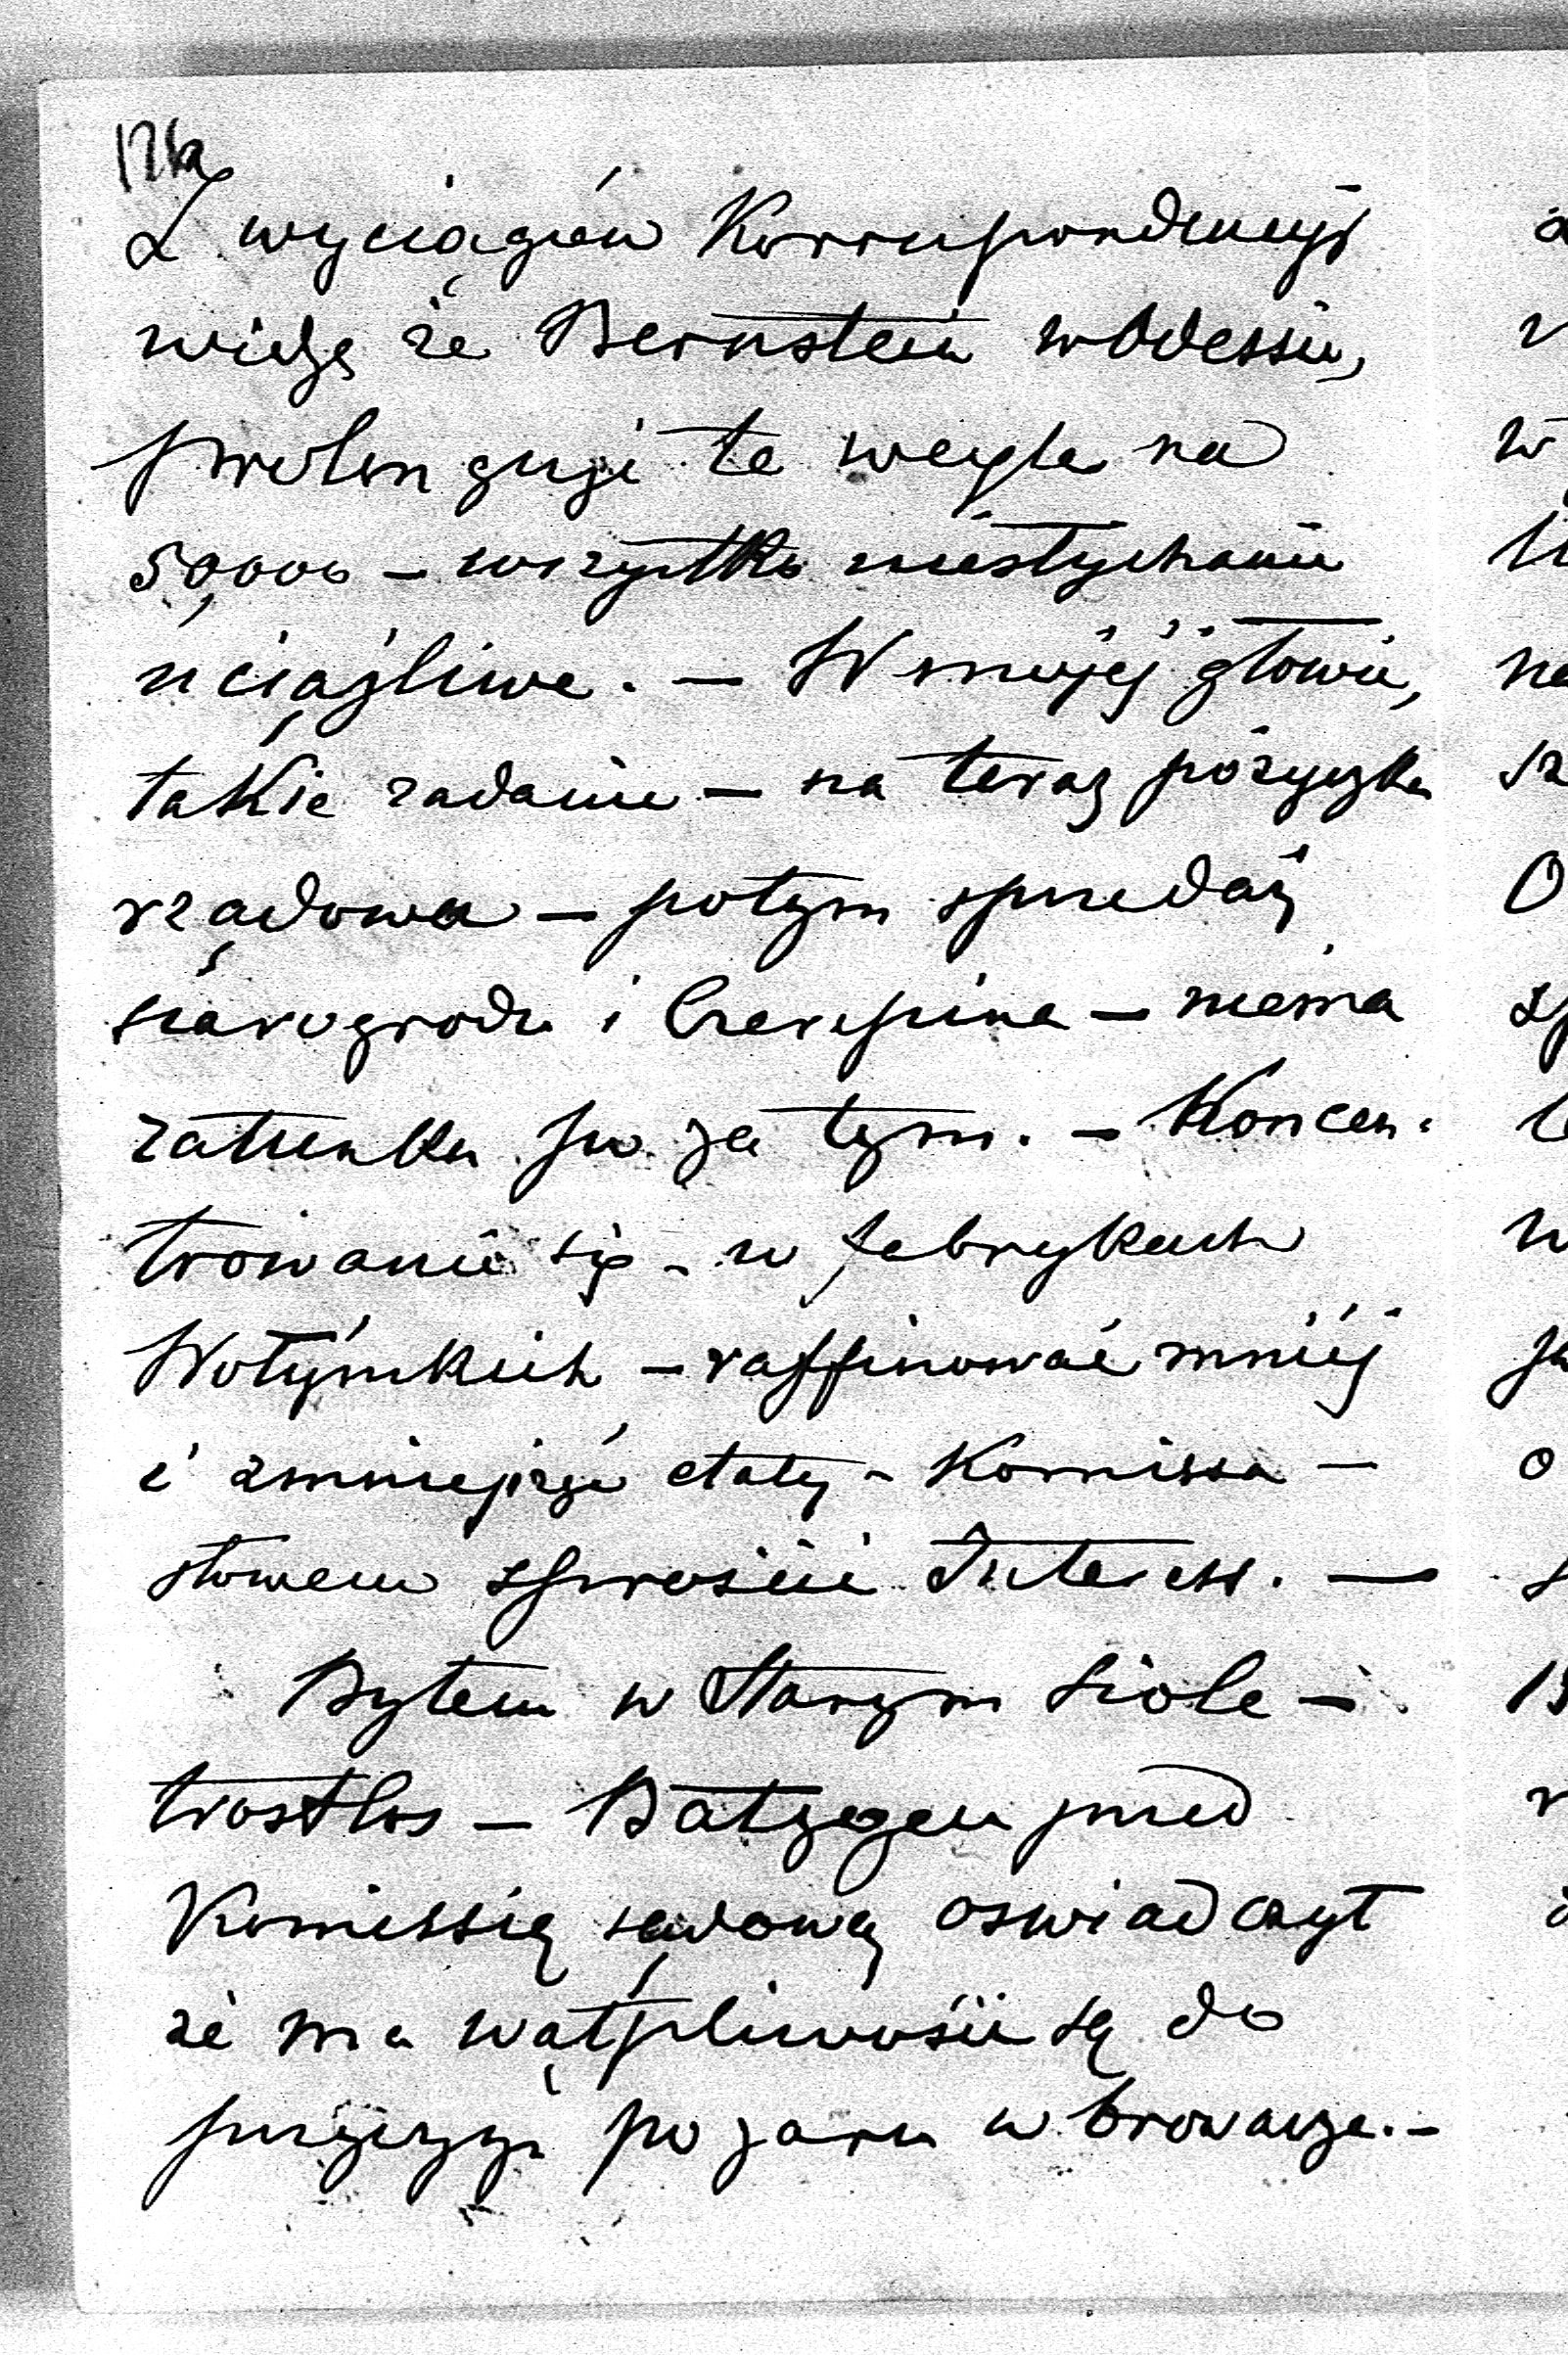 Z wyciągów Korrespondencyi
widzę że Bernstein w Odessie,
prolonguje te wexle na
50,000 – wszystko niesłychanie
uciążliwe. – W mojej głowie,
takie zadanie – na teraz pożyczka
rządowa – potym sprzedaż
starogrodu i Czerepina – niema
ratunku po za tym. – Koncen-
trowanie się – w fabrykach
Wołyńskich – raffinować mniéj
i zmniejszyć etaty – Kommissa –
słowem sprościć Interess. –
Byłem w Starym Siole –
trostlos – Batzegen przed
Komissią sądową oswiadczył
że ma wątpliwości są do
przyczyn pożaru w browarze. –